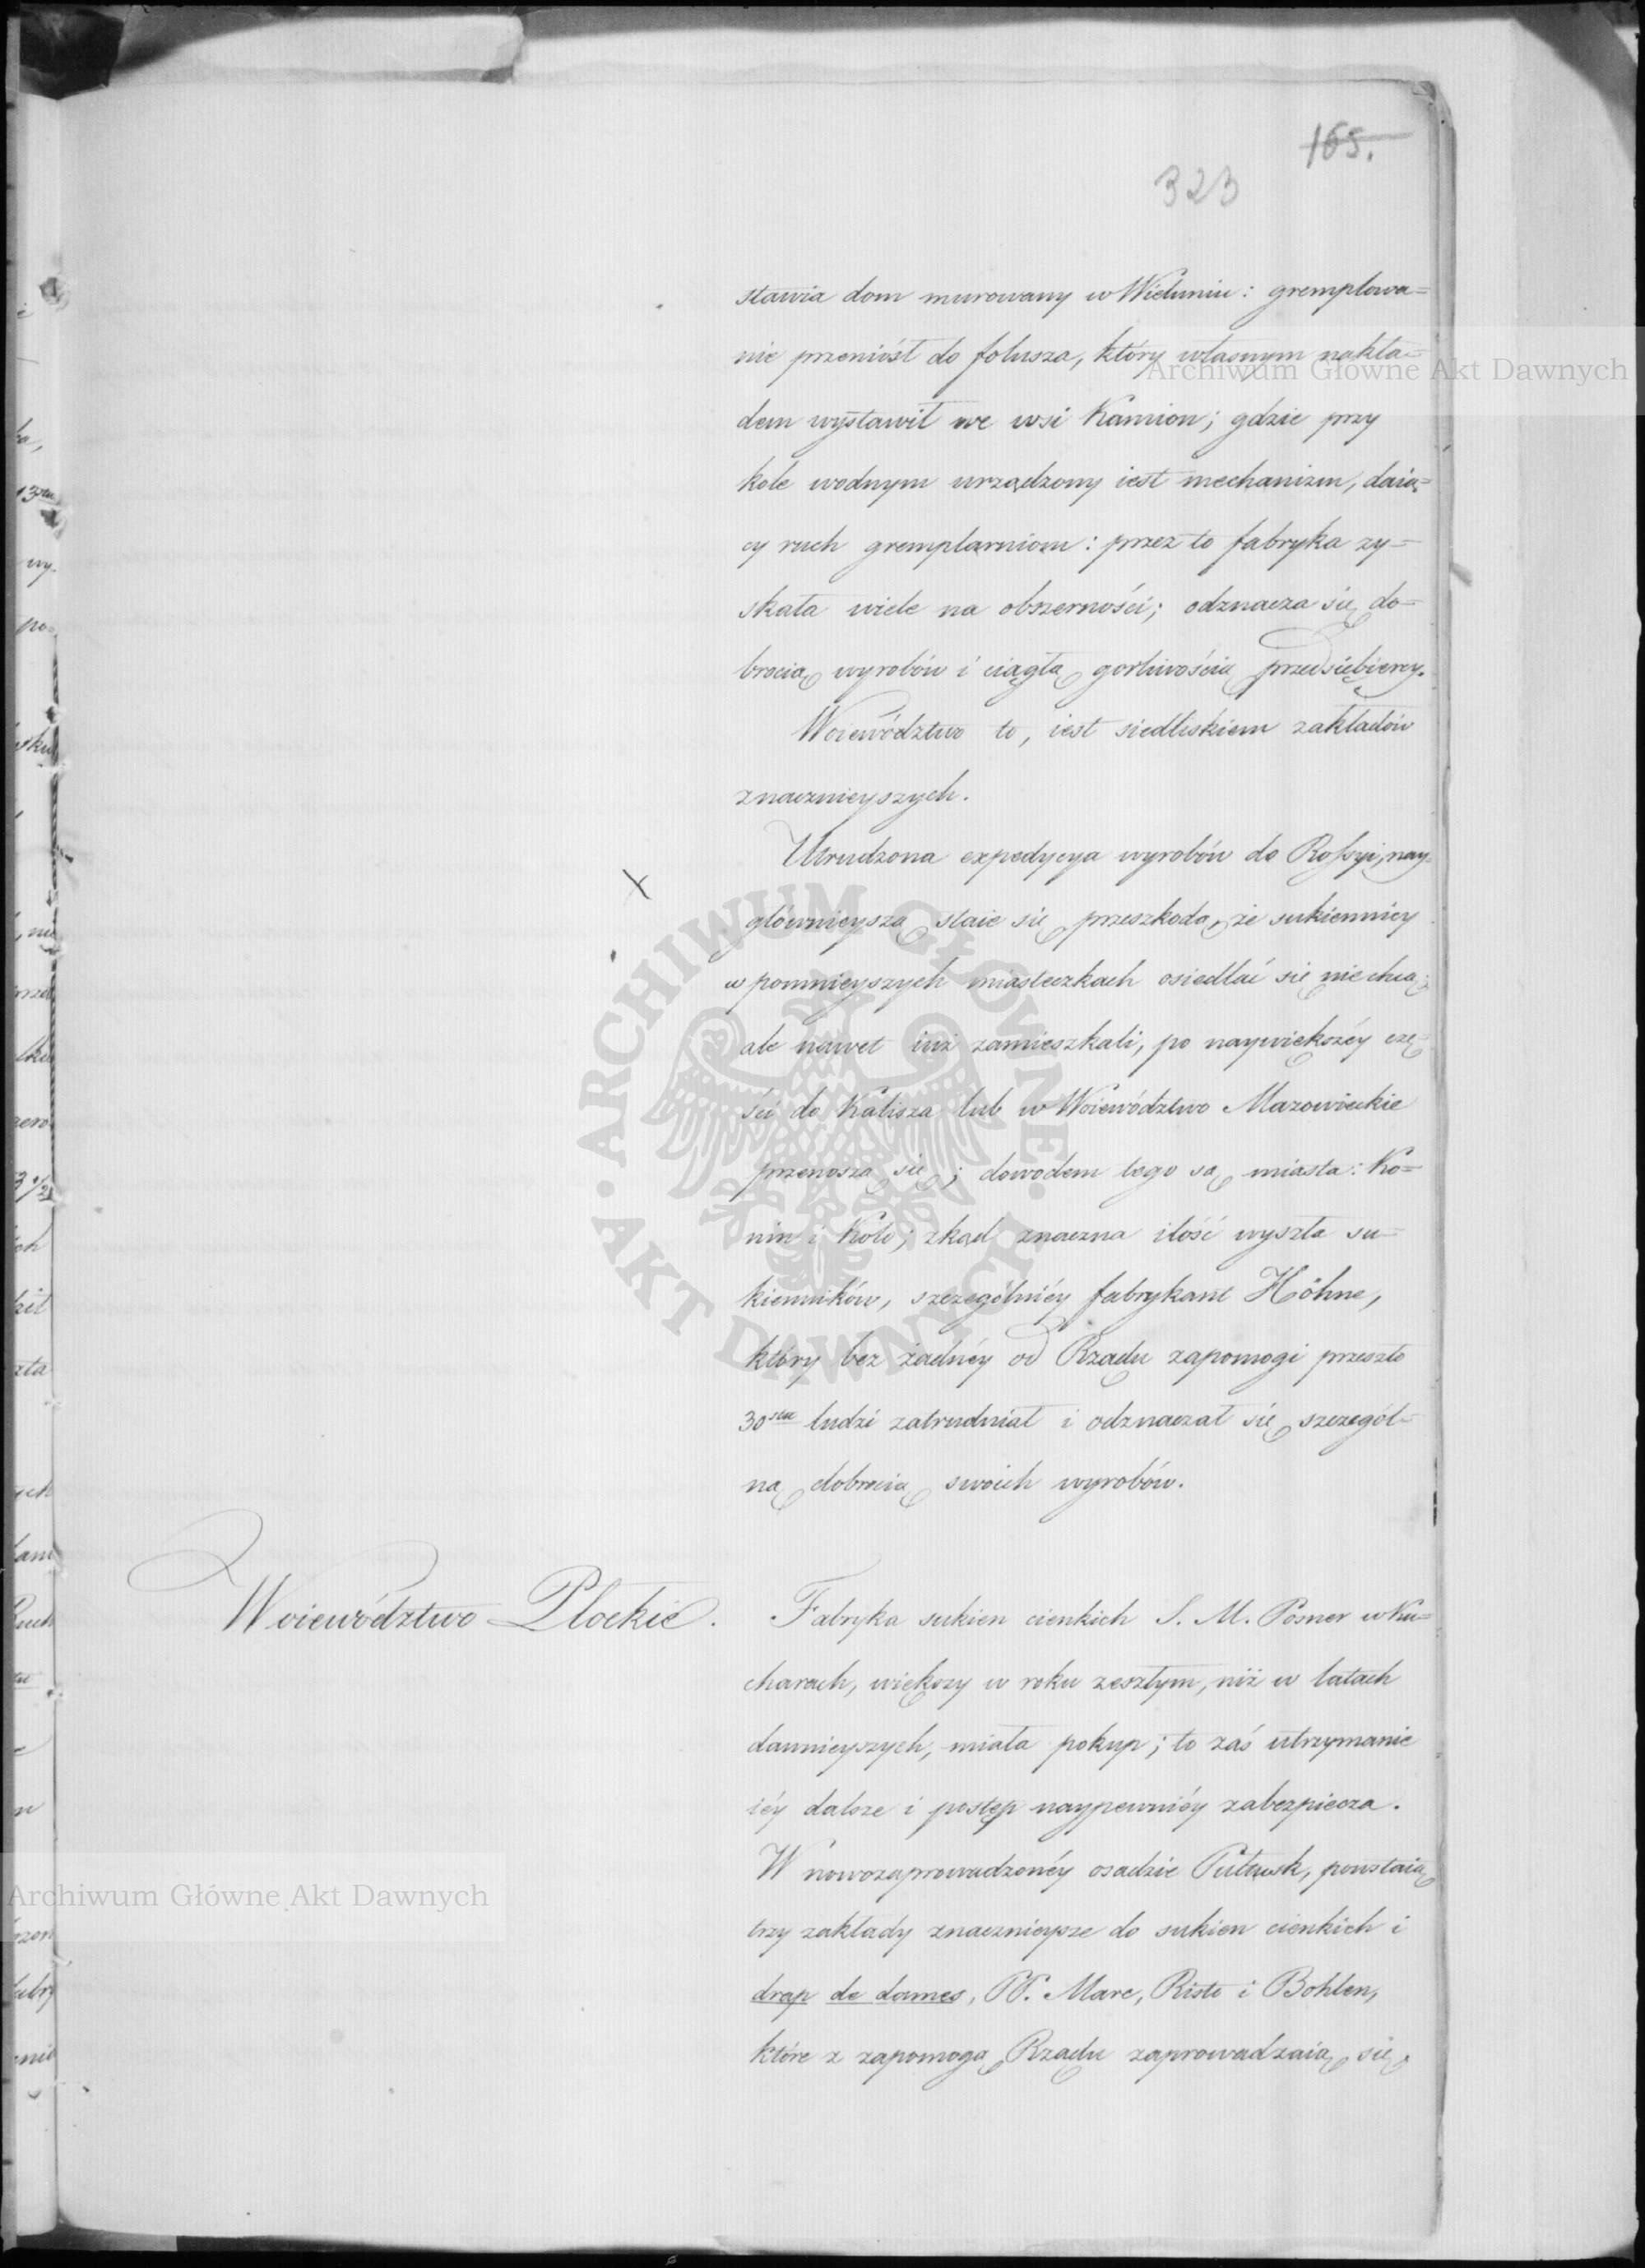 165.
323
stawia dom murowany w Wieluniu: gremplowa=
nie przeniósł do folusza, który własnym nakła=
dem wystawił we wsi Kamion; gdzie przy
kole wodnym urządzony iest mechanizm, daią=
cy ruch gremplarniom: przez to fabryka zy=
skała wiele na obszerności; odznacza się do=
brocią wyrobów i ciągłą gorliwością przedsiębiercy.
Woiewództwo to, iest siedliskiem zakładów
znacznieyszych.
Utrudzona expedycya wyrobów do Rossyi, nay=
głównieyszą staie się przeszkodą, że sukiennicy
w pomnieyszych miasteczkach osiedlać się nie chcą;
ale nawet iuż zamieszkali, po naywiększéy czę=
ści do Kalisza lub w Woiewództwo Mazowieckie
przenoszą się; dowodem tego są miasta: Ko=
nin i Koło; zkąd znaczna ilość wyszła su=
kienników, szczególniéy fabrykant Höhne,
który bez żadnéy od Rządu zapomogi przeszło
30stu ludzi zatrudniał i odznaczał się szczegól=
ną dobrocią swoich wyrobów.
Woiewództwo Płockie.
Fabryka sukien cienkich S. M. Posner w Ku=
charach, większy w roku zeszłym, niż w latach
dawnieyszych, miała pokup; to zaś utrzymanie
iéy dalsze i postęp naypewniéy zabezpiecza.
W nowozaprowadzonéy osadzie Pułtusk, powstaią
trzy zakłady znacznieysze do sukien cienkich i
drap de dames, PP. Marc, Riste i Bohlen,
które z zapomogą Rządu zaprowadzaią się.
Archiwum Główne Akt Dawnych
ARCHIWUM GŁÓWNE · AKT DAWNYCH ·
Archiwum Główne Akt Dawnych